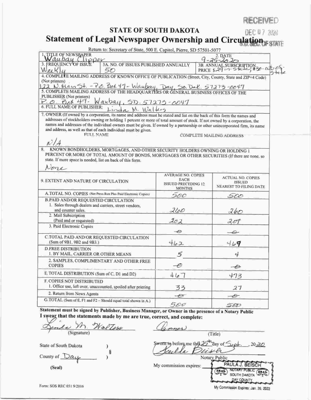 RECEIVED
DEC 07 2020
S.D. SEC. OF STATE
STATE OF SOUTH DAKOTA
Statement of Legal Newspaper Ownership and Circulation
Return to: Secretary of State, 500 E. Capitol, Pierre, SD 57501-5077
1. TITLE OF NEWSPAPER
Waubay Clipper
2. DATE
9-25-2020
3. FREQUENCY OF ISSUE
Weekly
3A. NO. OF ISSUES PUBLISHED ANNUALLY
50
3B. ANNUAL SUBSCRIPTION
PRICE
4. COMPLETE MAILING ADDRESS OF KNOWN OFFICE OF PUBLICATION (Street, City, County, State and ZIP+4 Code)
(Not printers)
122 N. Main St. - P.O. Box 47 - Waubay, Day, So. Dak 57273-0047
5. COMPLETE MAILING ADDRESS OF THE HEADQUARTERS OF GENERAL BUSINESS OFFICES OF THE
PUBLISHER (Not printer)
P.O. Box 47 - Waubay, SD. 57273-0047
6. FULL NAME OF PUBLISHER:
Linda M. Walters
7. OWNER (If owned by a corporation, its name and address must be stated and
N/A
FULL NAME
COMPLETE MAILING ADDRESS
8. KNOWN BONDHOLDERS, MORTGAGEES, AND OTHER SECURITY HOLDERS OWNING OR HOLDING 1
PERCENT OR MORE OF TOTAL AMOUNT OF BONDS, MORTGAGES OR OTHER SECURITIES (If there are none, so
state. If more space is needed, list on back of this form.
None
9. EXTENT AND NATURE OF CIRCULATION
AVERAGE NO. COPIES
EACH
ISSUED PRECEDING 12
MONTHS
ACTUAL NO. COPIES
ISSUED
NEAREST TO FILING DATE
A. TOTAL NO. COPIES
500 500
B. PAID AND/OR REQUESTED CIRCULATION
1. Sales through dealers and carriers, street vendors,
and counter sales
260 260
2. Mail Subscription
(Paid and or requested)
202 209
3. Paid Electronic Copies
C. TOTAL PAID AND/OR REQUESTED CIRCULATION
(Sum of 9B1, 9B2 and 9B3.)
462 469
D. FREE DISTRIBUTION
1. BY MAIL, CARRIER OR OTHER MEANS
5 4
2. SAMPLES, COMPLIMENTARY AND OTHER FREE
COPIES
E. TOTAL DISTRIBUTION (Sum of C, D1 and D2)
467 473
F. COPIES NOT DISTRIBUTED
1. Office use, left over, unaccounted, spoiled after printing
33 27
2. Return from News Agents
G. TOTAL (Sum of E, F1 and F2 - Should equal total shown in A.)
500 500
Statement must be signed by Publisher, Business Manager, or Owner in the presence of a Notary Public
I swear that the statements made by me are true, correct, and complete:
Linda M Walters
(Signature)
Owner
(Title)
State of South Dakota
County of Day
(Seal)
Sworn to before me this 25th day of Sept, 2020
Notary Public
My commission expires:
NOTARY PUBLIC
SOUTH DAKOTA
My Commission Expires Jan. 25, 2023
Form: SOS REC 051 9/2016